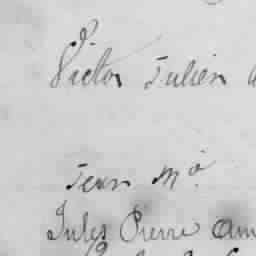 Victor Julien
Jean Ma.
Jules Pierre Am